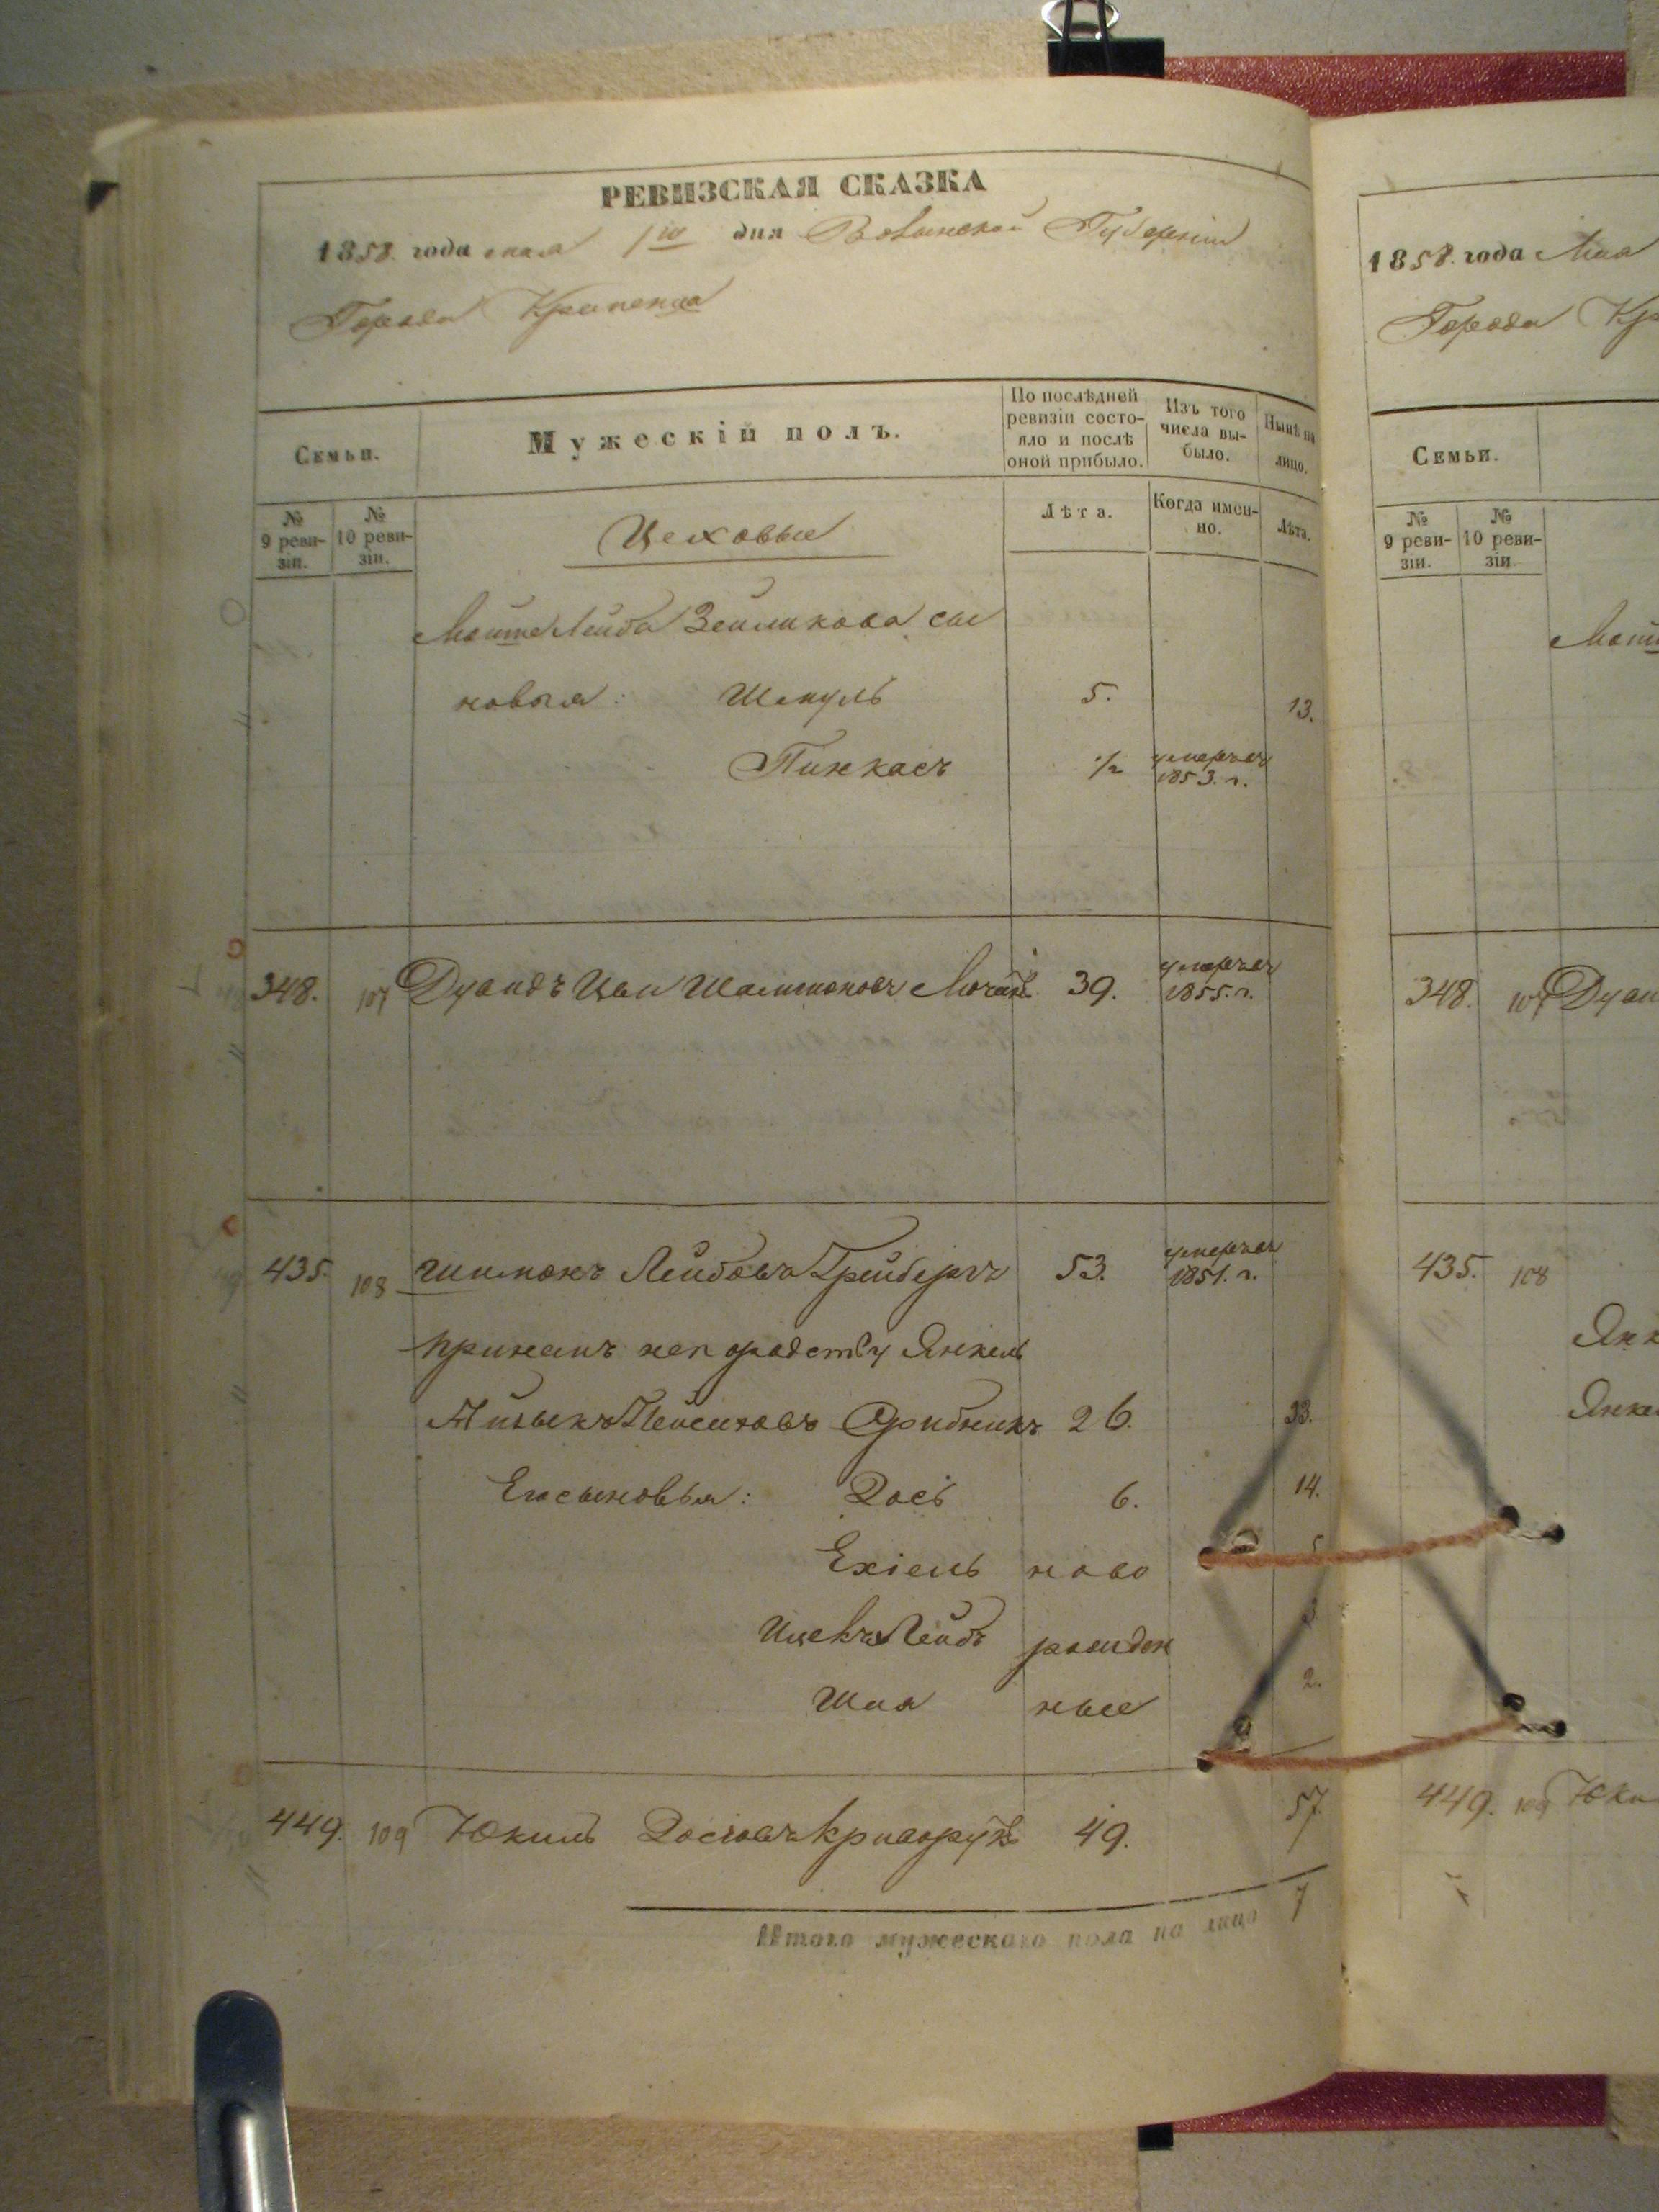 РЕВИЗСКАЯ СКАЗКА
1858 года мая 1го дня Волынской Губернии
Города Кременца
Семьи.
Мужескій полъ.
По послѣдней ревизіи состояло и послѣ оной прибыло.
Изъ того числа выбыло.
Нынѣ на лицо.
№ 9 ревизіи.
№ 10 ревизіи.
Цеховые
Лѣта.
Когда именно.
Лѣта.
Лейба Зейликова сы
новья: Шмуль 5. 13.
Пинкасъ 1/2 умеръ въ 1853. г.
348. 107 Цви 39. умеръ въ 1855. г.
435. 108 Шимонъ Лейбовъ Грейбергъ 53. умеръ въ 1851. г.
Янкель
26. 33.
Его сыновья: 6. 14.
Ехіель ново 5
Ицекъ Лейбъ рожден 3
Шая ные 2.
449. 109 Юкиль Криворукъ 49. 57
Итого мужескаго пола на лицо 7
1858. года Мая
Города Кр
Семьи.
№ 9 ревизіи.
№ 10 ревизіи.
348. 107
435. 108
Янк
Янке
449. 109 Юки